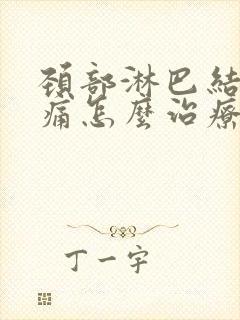 頚部淋巴結
痛怎麼治療
丁一宇